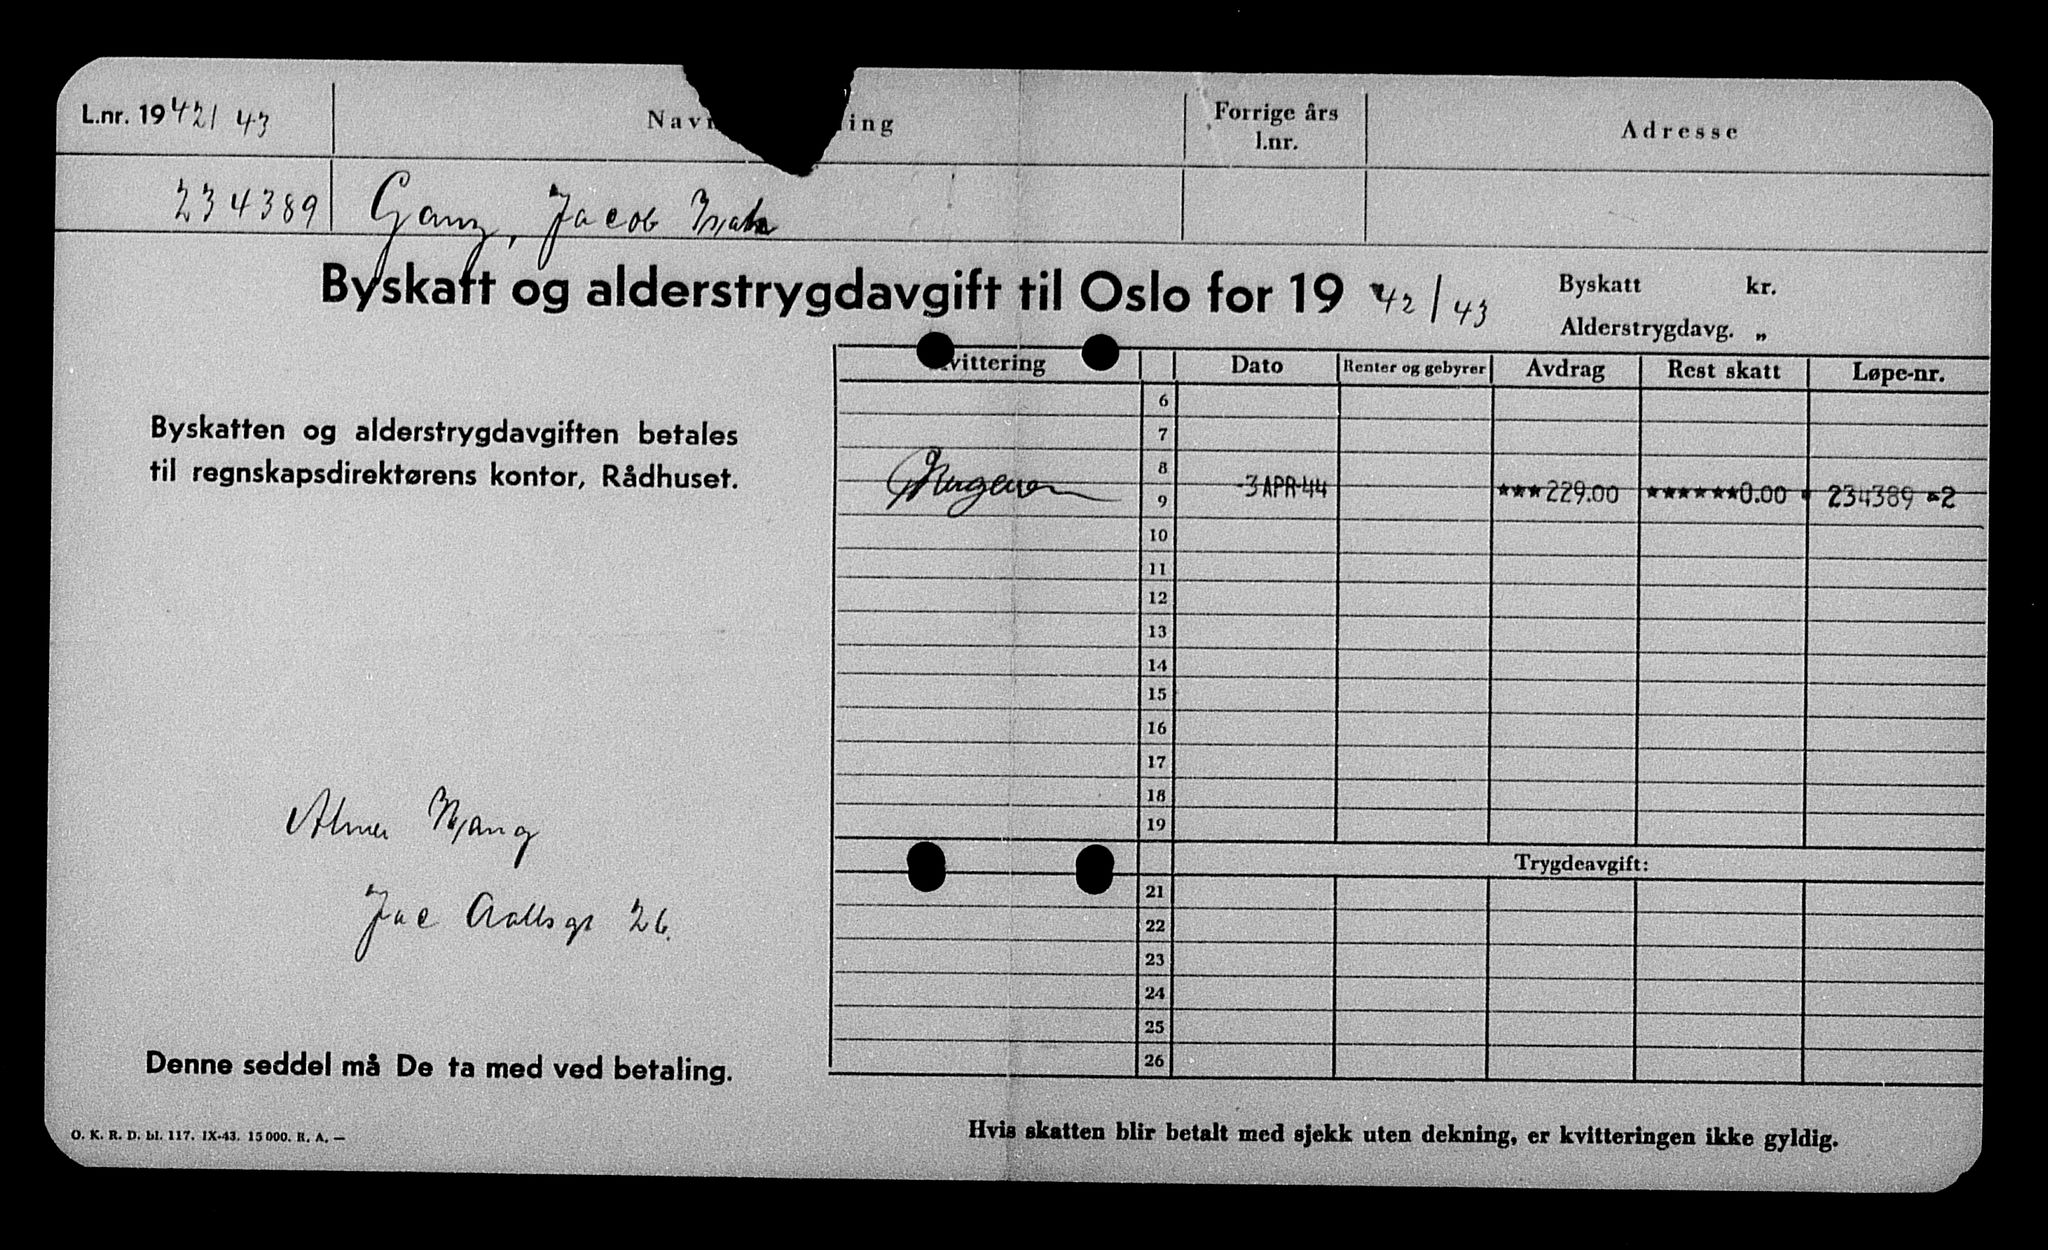 L.nr. 1942/43
Forrige års
l.nr.
Adresse
234389 Ganz, Jacob
Byskatt og alderstrygdavgift til Oslo for 1942/43
Byskatt kr.
Alderstrygdavg. „
Dato Renter og gebyrer Avdrag Rest skatt Løpe-nr.
6
7
8
-3 APR 44 ***229.00 ******0.00 234389 -2
9
10
11
12
13
14
15
16
17
18
19
Trygdeavgift:
21
22
23
24
25
26
Byskatten og alderstrygdavgiften betales
til regnskapsdirektørens kontor, Rådhuset.
Jac Aallsgt 26.
Denne seddel må De ta med ved betaling.
O. K. R. D. bl. 117. IX-43. 15 000. R. A. —
Hvis skatten blir betalt med sjekk uten dekning, er kvitteringen ikke gyldig.